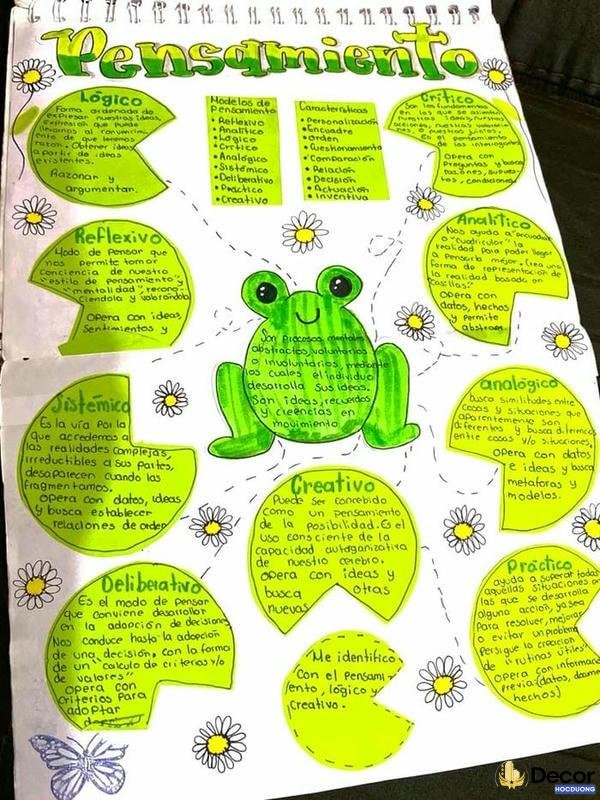 Pensamiento
Lógico
Forma ordenada de
expresar nuestras ideas,
expresión que puede
llevarnos al convencimi-
ento de que tenemos
razón. Obtener ideas
a partir de ideas
existentes.
Razonar y
argumentar.
Modelos de
Pensamiento
• Reflexivo
• Analítico
• Lógico
• Crítico
• Analógico
• Sistémico
• Deliberativo
• Práctico
• Creativo
Características
• Personalización
• Encuadre
• orden
• Cuestionamiento
• Comparación
• Relación
• Decisión
• Actuación
• Inventiva
Crítico
Son los fundamentos
en los que se asientan
nuestras ideas, nuestras
acciones, nuestras valoracio-
nes o nuestros juicios.
Es el pensamiento
de las interrogantes
Opera con
Preguntas y busca
razones, supues-
tos, condiciones
Reflexivo
Modo de Pensar que
nos permite tomar
Conciencia de nuestro
"estilo de pensamiento",
"mentalidad", recono-
ciendola y valorandola
Opera con ideas,
Sentimientos y
Analítico
Nos ayuda a "encuadrar"
o "cuadricular" la
realidad para poder llegar
a pensarla mejor. Crea una
forma de representación de
la realidad basada en
"casillas"
Opera con
datos, hechos
y permite
abstraer
Son procesos mentales
abstractos, voluntarios
o involuntarios, mediante
los cuales el individuo
desarrolla sus ideas.
Son ideas, recuerdos
y creencias en
movimiento
Sistémico
Es la vía por la
que accedemos a
las realidades complejas,
irreductibles a sus partes,
desaparecen cuando las
fragmentamos.
opera con datos, ideas
y busca establecer
relaciones de orden
analógico
busca similitudes entre
cosas y situaciones que
aparentemente son
diferentes y busca diferencia
entre cosas y/o situaciones.
Opera con datos
e ideas y busca
metaforas y
modelos.
Creativo
Puede ser concebido
como un pensamiento
de la posibilidad. Es el
uso consciente de la
capacidad autorganizativa
de nuestro cerebro.
opera con ideas y
busca otras
nuevas
Deliberativo
Es el modo de Pensar
que conviene desarrollar
en la adopción de decisiones
Nos conduce hasta la adopción
de una decisión. Con la forma
de un "calculo de criterios y/o
de valores"
opera con
criterios Para
adoptar
Práctico
ayuda a superar todas
aquellas situaciones en
las que se desarrolla
alguna acción, ya sea
para resolver, mejorar
o evitar un problema
Persigue la creación
de "rutinas útiles"
Opera con información
Previa (datos,
hechos)
"Me identifico
Con el pensami-
ento, lógico y
creativo.
Decor
HOCDUONG